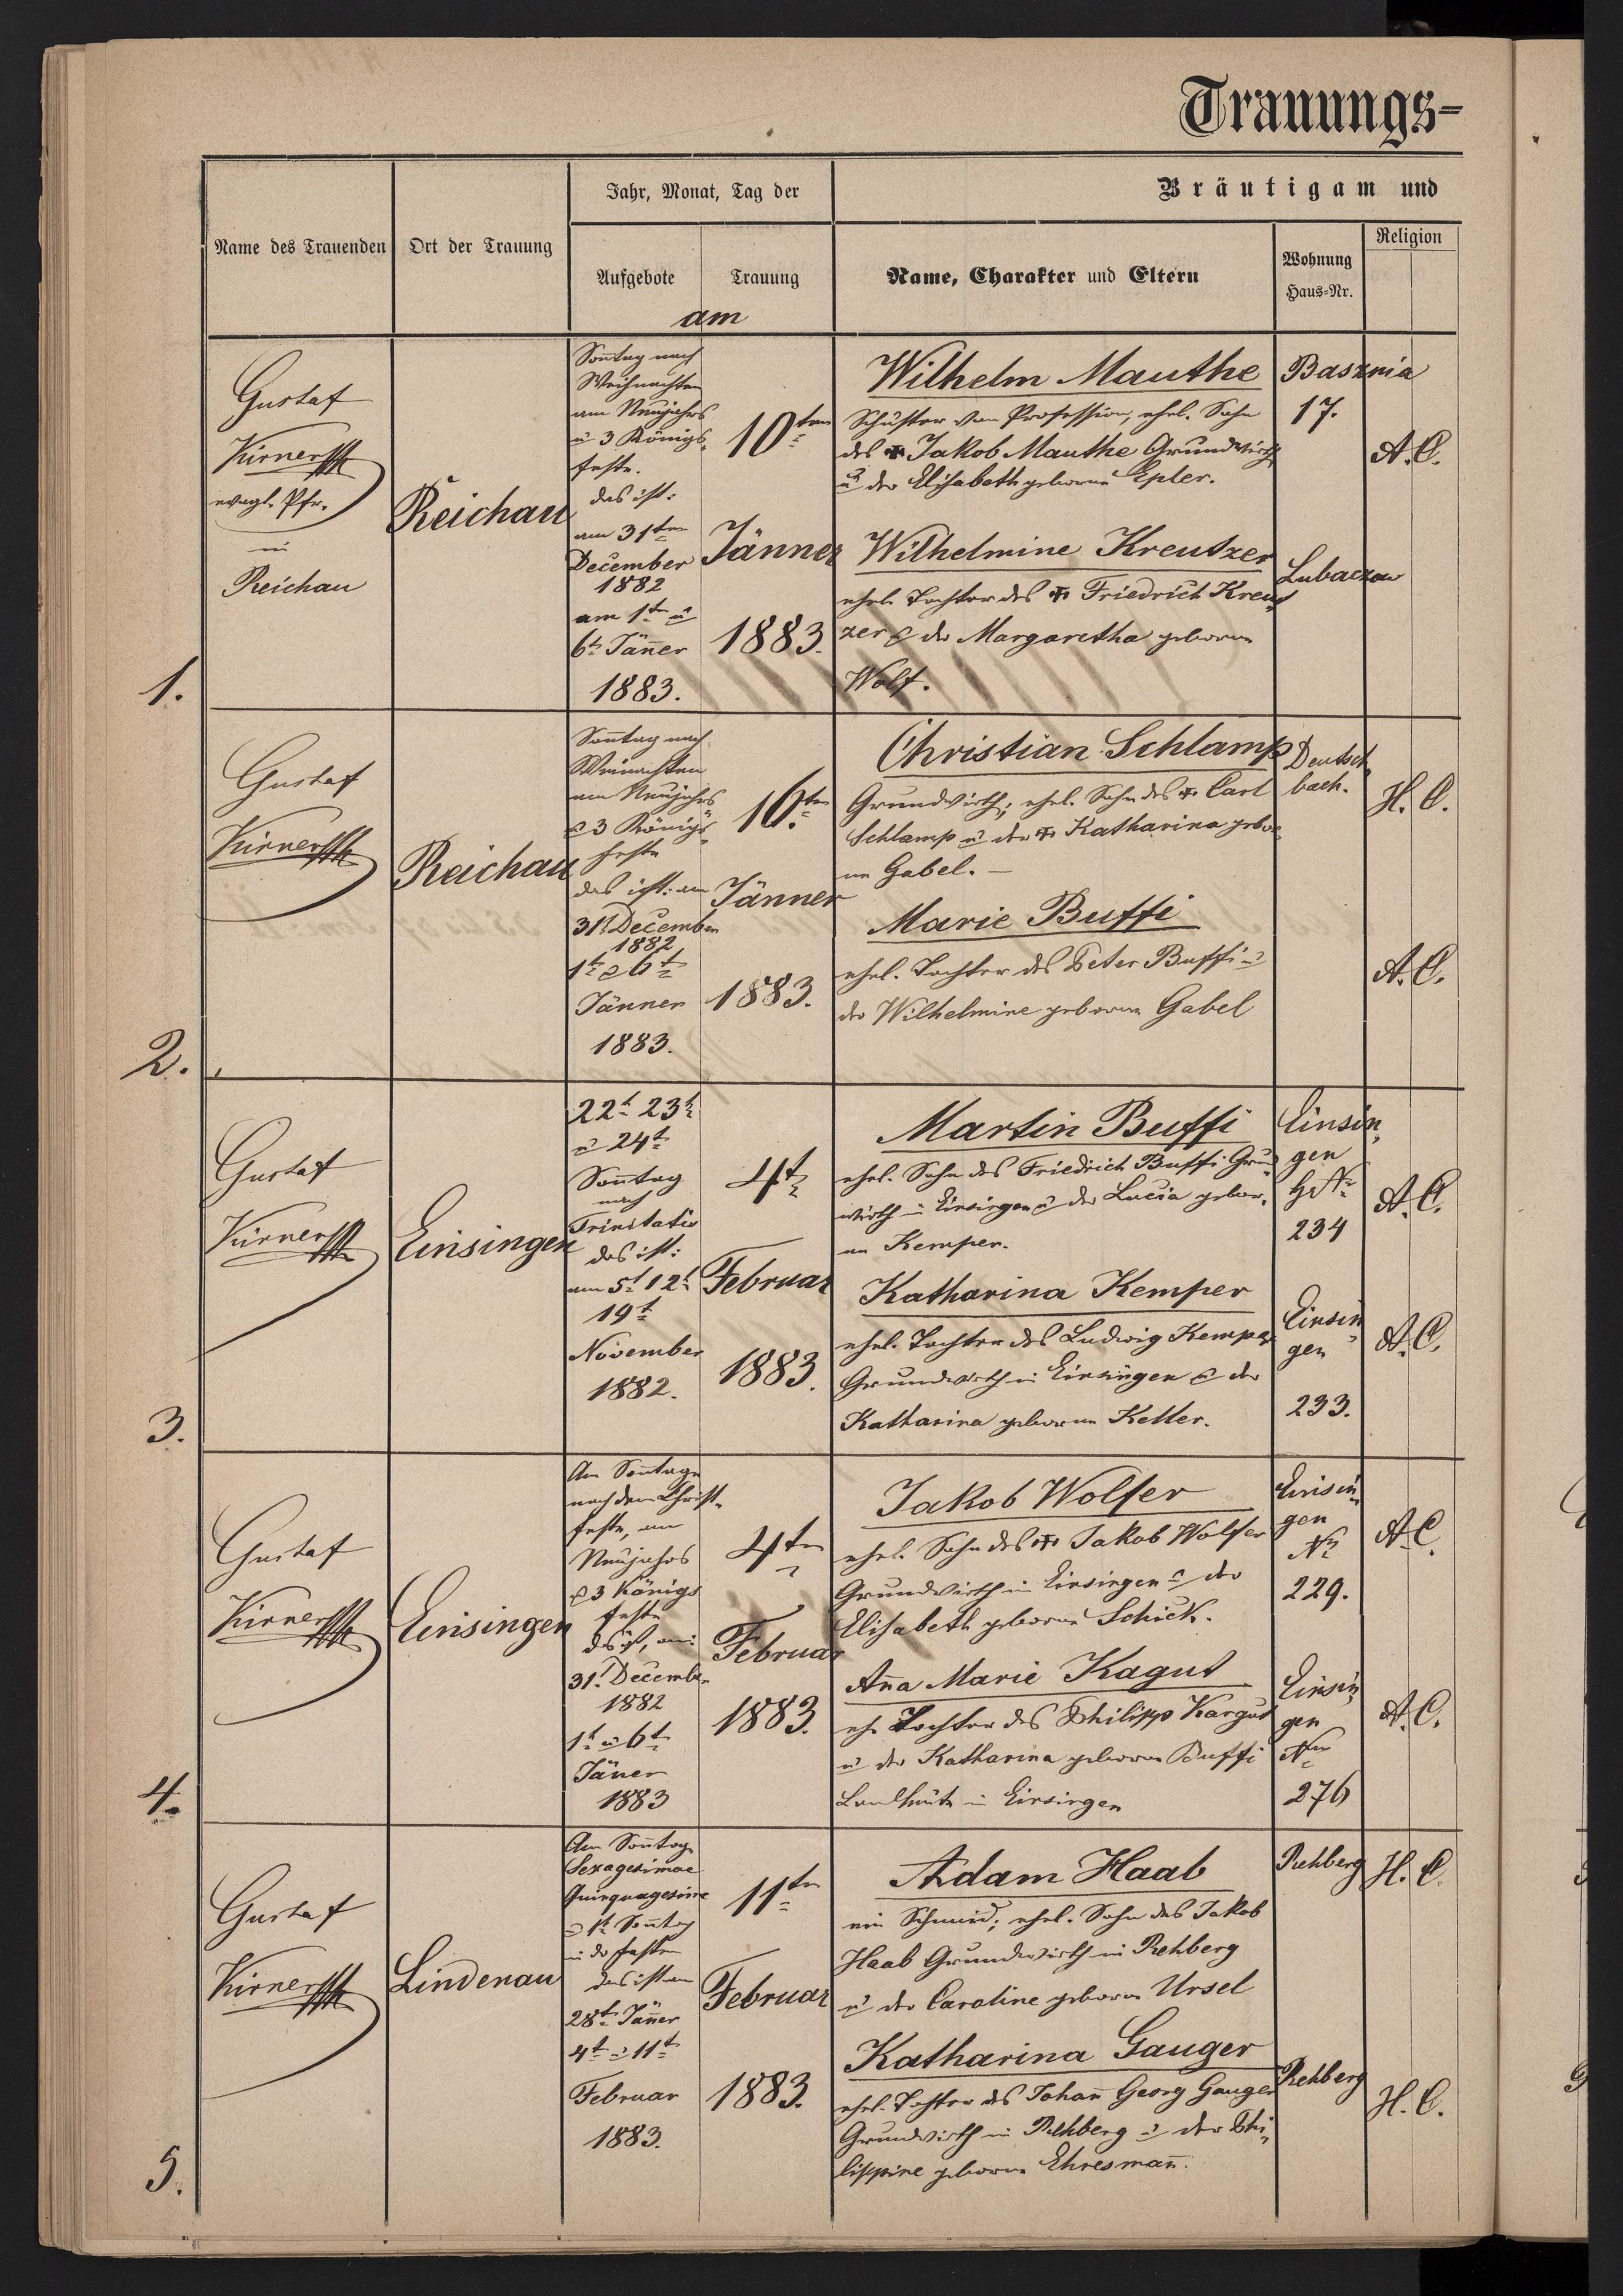 Trauungs-
Jahr, Monat, Tag der
Bräutigam und
Name des Trauenden
Ort der Trauung
Aufgebote
Trauung
am
Name, Charakter und Eltern
Wohnung
Haus-Nr.
Religion
1.
Gustaf
Kirner
evagl. Pfr.
in
Reichau
Reichau
Sontag nach
Weihnachten
am Neujahrs
u 3 Königs
feste.
das ist:
am 31ten
December
1882
am 1ten u
6t Jäner
1883.
10ten
Jänner
1883.
Wilhelm Mauthe
Schuster von Profession, ehel. Sohn
des Jakob Mauthe Grundwirth
u der Elisabeth geborne Epler.
Basznia
17.
A. C.
Wilhelmine Kreutzer
ehel. Tochter des Friedrich Kreut
zer u der Margaretha geborne
Wolf.
Lubaczow
2.
Gustaf
Kirner
Reichau
Sontag nach
Weinachten
am Neujahrs
u 3 Königs
feste
das ist: am
31t December
1882
1t u 6t
Jänner
1883.
16ten
Jänner
1883.
Christian Schlamp
Grundwirth, ehel. Sohn des Carl
Schlamp u der Katharina gebor
ne Gabel. –
Deutsch
bach.
H. C.
Marie Buffi
ehel. Tochter des Peter Buffi u
der Wilhelmine geborne Gabel
A. C.
3.
Gustaf
Kirner
Einsingen
22t 23t
u 24t
Sontag
nach
Trinitatis
das ist:
am 5t 12t
19t
November
1882.
4t
Februar
1883.
Martin Buffi
ehel. Sohn des Friedrich Buffi Grund
wirth in Einsingen u der Lucia gebor
ne Kemper.
Einsin
gen
HN
234
A. C.
Katharina Kemper
ehel. Tochter des Ludwig Kemper
Grundwirth in Einsingen u der
Katharina geborne Keller.
Einsin
gen
233.
A. C.
4.
Gustaf
Kirner
Einsingen
Am Sontage
nach dem Christ
feste, am
Neujahrs
u 3 Königs
feste
das ist, am:
31t December
1882
1t u 6t
Jäner
1883
4ten
Februar
1883.
Jakob Wolfer
ehel. Sohn des Jakob Wolfer
Grundwirth in Einsingen u der
Elisabeth geborne Schick.
Einsin
gen
N
229.
A. C.
Ana Marie Kagut
eh. Tochter des Philipp Kargut
u der Katharina geborne Buffi
in Einsingen
Einsin
gen
Nro
276
A. C.
5.
Gustaf
Kirner
Lindenau
Am Sontag
Sexagesimae
Quinquagesime
u 1t Sontag
in der Fasten
das ist am
28t Jäner
4t u 11t
Februar
1883.
11ten
Februar
1883.
Adam Haab
ein Schmied, ehel. Sohn des Jakob
Haab Grundwirth in Rehberg
u der Caroline geborne Ursel
Rehberg
H. C.
Katharina Gauger
ehel. Tochter des Johan Georg Gauger
Grundwirth in Rehberg u der Phi
lippine geborne Ehresman.
Rehberg
H. C.